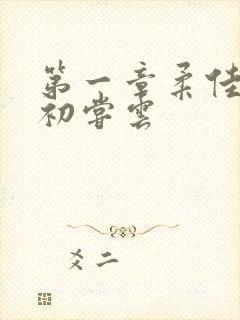 第一章柔佳
初尝雲
爻二